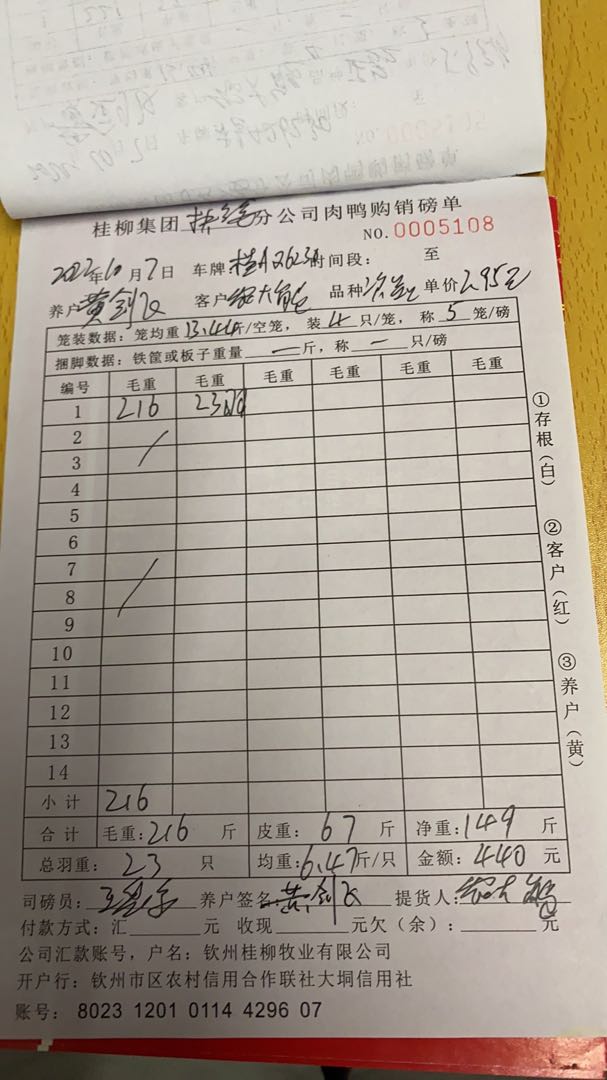 桂柳集团 分公司肉鸭购销磅单
NO.0005108
年10月7日 车牌 时间段: 至
养户黄剑飞 客户 大 品种 单价2.95元
笼装数据:笼均重13.44斤/空笼,装4只/笼,称5笼/磅
捆脚数据:铁筐或板子重量一斤,称一只/磅
编号 毛重 毛重 毛重 毛重 毛重 毛重
1 216 23只
2
3
4
5
6
7
8
9
10
11
12
13
14
小计 216
合计 毛重:216 斤 皮重:67 斤 净重:149 斤
总羽重:23 只 均重:6.47斤/只 金额:440 元
司磅员: 养户签名 黄剑飞 提货人:
付款方式:汇 元 收现 元欠(余): 元
公司汇款账号,户名:钦州桂柳牧业有限公司
开户行:钦州市区农村信用合作联社大垌信用社
账号: 8023 1201 0114 4296 07
①存根(白)
②客户(红)
③养户(黄)